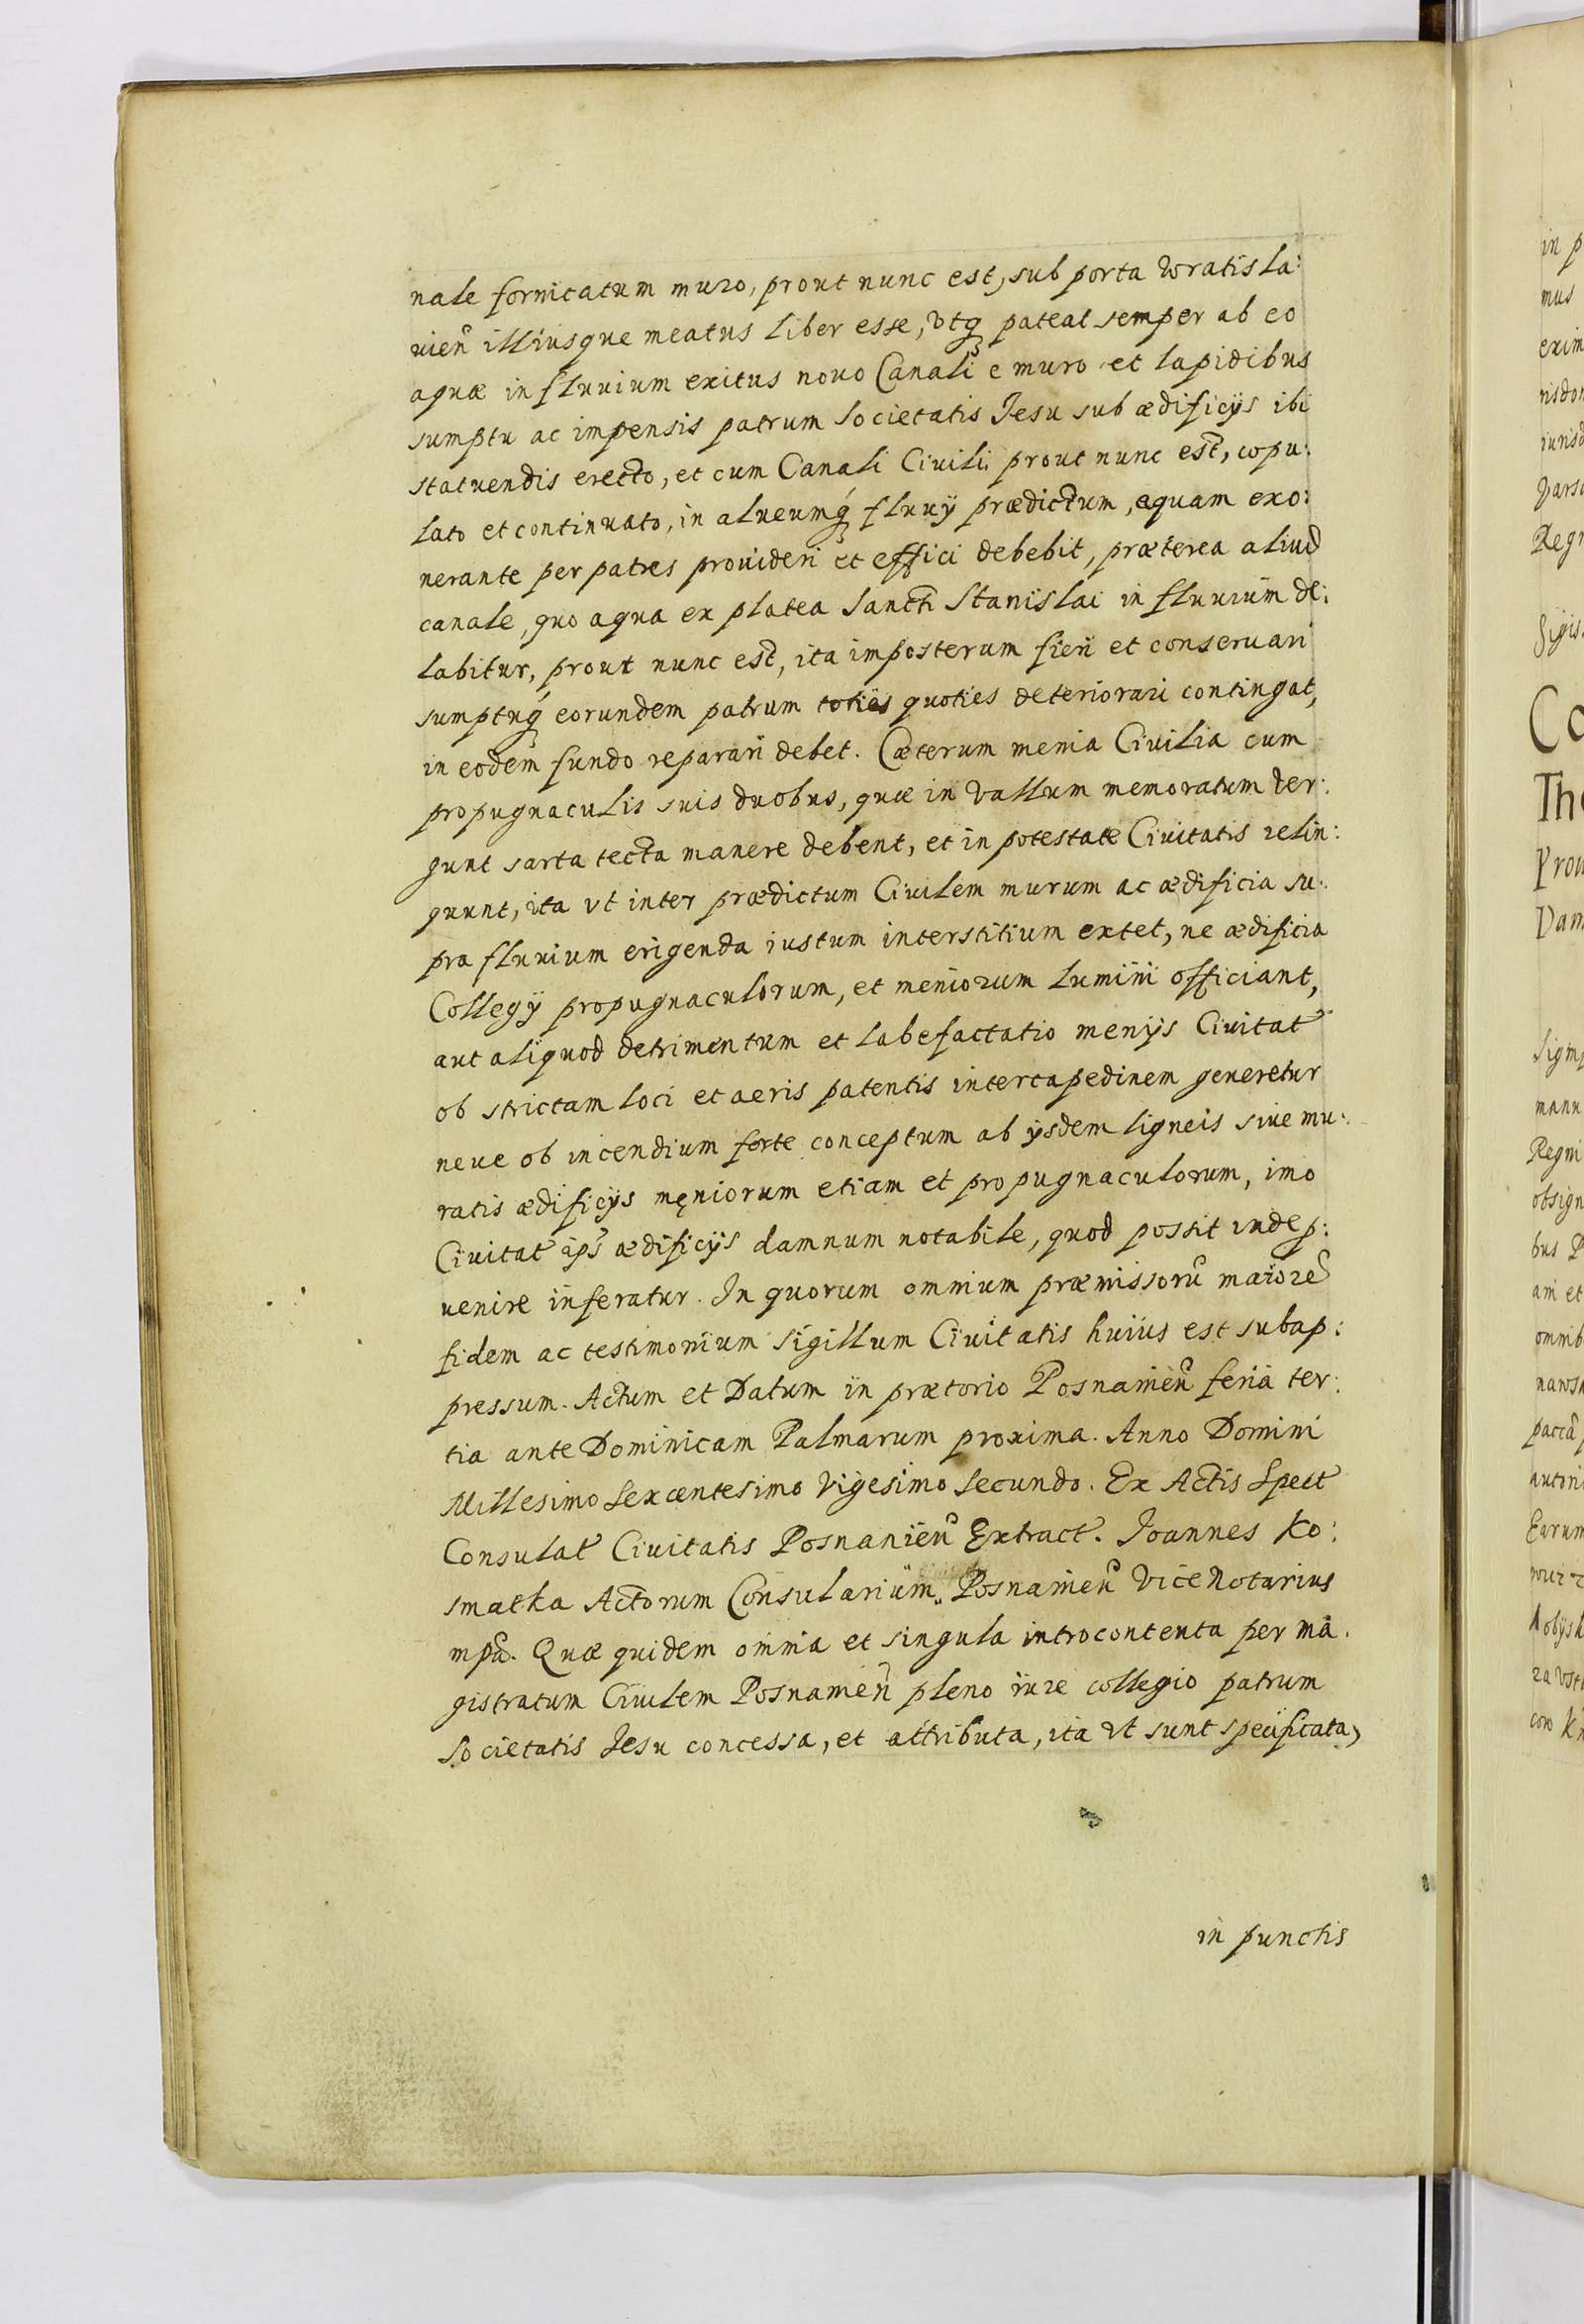 nale fornicatum muro, prout nunc est, sub porta Wratisla:
uien̄ illiusque meatus liber esse, vtq̨ pateat semper ab eo
aquæ in fluuium exitus nouo Canali e muro et lapidibus
sumptu ac impensis patrum Societatis Jesu sub ædificijs ibi
statuendis erecto, et cum Canali Ciuili prout nunc est, copu:
lato et continuato, in alueumq̨ fluuÿ prædictum, aquam exo:
nerante per patres prouideri et effici debebit, præterea aliud
canale, quo aqua ex platea Sancti Stanislai in fluuium de:
labitur, prout nunc est, ita imposterum fieri et conseruari
sumptuq̨ eorundem patrum toties quoties deteriorari contingat,
in eodem fundo reparari debet. Cæterum menia Ciuilia cum
propugnaculis suis duobus, quæ in vallum memoratum ver:
gunt sarta tecta manere debent, et in potestate Ciuitatis relin:
quunt, ita vt inter prædictum Ciuilem murum ac ædificia su:
pra fluuium erigenda iustum interstitium extet, ne ædificia
Collegÿ propugnaculorum, et meniorum lumini officiant,
aut aliquod detrimentum et labefactatio menijs Ciuitat
ob strictam loci et aeris patentis intercapedinem generetur
neue ob incendium forte conceptum ab ÿsdem ligneis siue mu:
ratis ædificÿs męniorum etiam et propugnaculorum, imo
Ciuitat ips̄ ædificÿs damnum notabile, quod possit inde p:
uenire inferatur. In quorum omnium præmissorū maiorē
fidem ac testimonium Sigillum Ciuitatis huius est subap:
pressum. Actum et Datum in prætorio Posnanien̄ feria ter:
tia ante Dominicam Palmarum proxima. Anno Domini
Millesimo Sexcentesimo Vigesimo Secundo. Ex Actis Spect
Consulat Ciuitatis Posnanien̄ Extract. Joannes Ko:
smatka Actorum Consularium Posnanien̄ ViceNotarius
mp̄a. Quæ quidem omnia et singula introcontenta per ma.
gistratum Ciuilem Posnanien̄ pleno iure collegio patrum
Societatis Jesu concessa, et attributa, ita vt sunt specificata,
in punctis